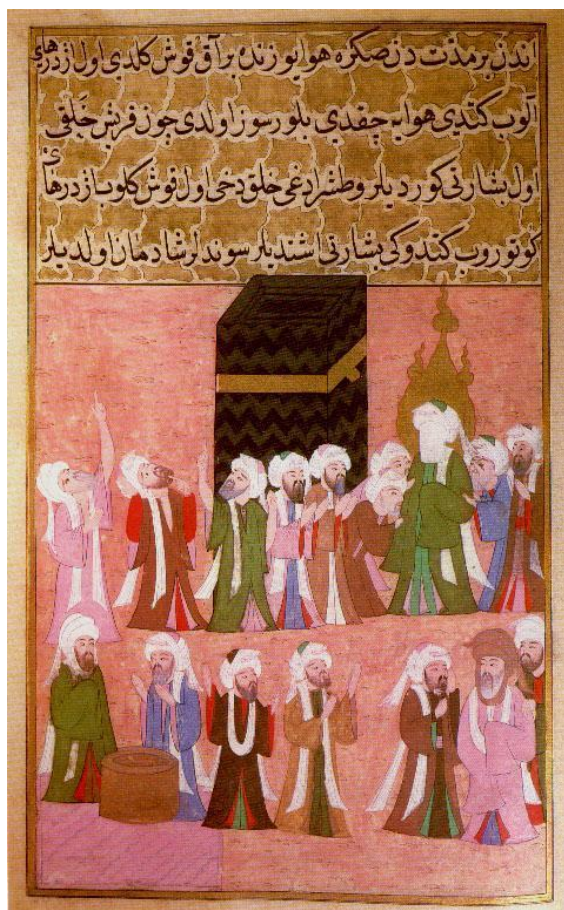 اندن بر مدتدن صكره هوا یوزنده بر آق قوش كلدی اول اژدرهای
آلوب كتدی هوایه چقدی بلورسوز اولدی چون قریش خلقی
اول بشارتی كوردیلر و طشرادغی خلق دخی اول قوش كلوب اژدرهای
كوتوروب كتدوكی بشارتی اشتدیلر سوندلر شادمان اولدیلر